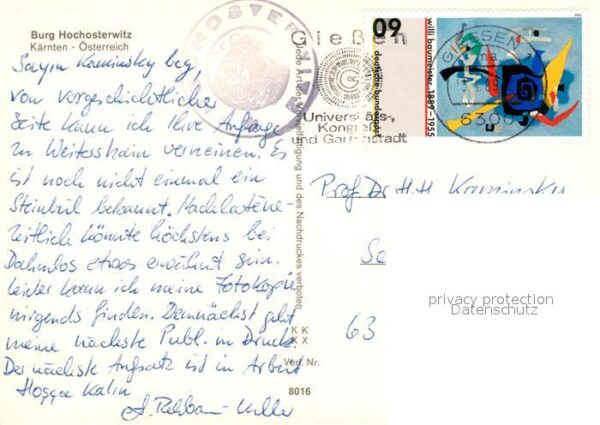 Burg Hochosterwitz
Kärnten - Österreich
Sayın Kaminsky beg,
von vorgeschichtlicher
Seite kann ich Ihre Anfrage
zu Weitershain verneinen. Es
ist noch nicht einmal ein
Steinbeil bekannt. Nachlatène-
zeitlich könnte höchstens bei
etwas erwähnt sein.
Leider kann ich meine Fotokopie
nirgends finden. Demnächst geht
meine nächste Publ. in Druck.
Der nächste Aufsatz ist in Arbeit
Hoşça Kalın
HOSTERWITZ
Jede Art der Vervielfältigung und des Nachdruckes verboten
K K
K X
Verl. Nr.
8016
Gießen
Universitäts-,
Kongreß-
und Gartenstadt
60
deutsche bundespost
willi baumeister, 1889-1955
GIESSEN
6300
Prof. Dr. H. H. Kaminsky
63
privacy protection
Datenschutz